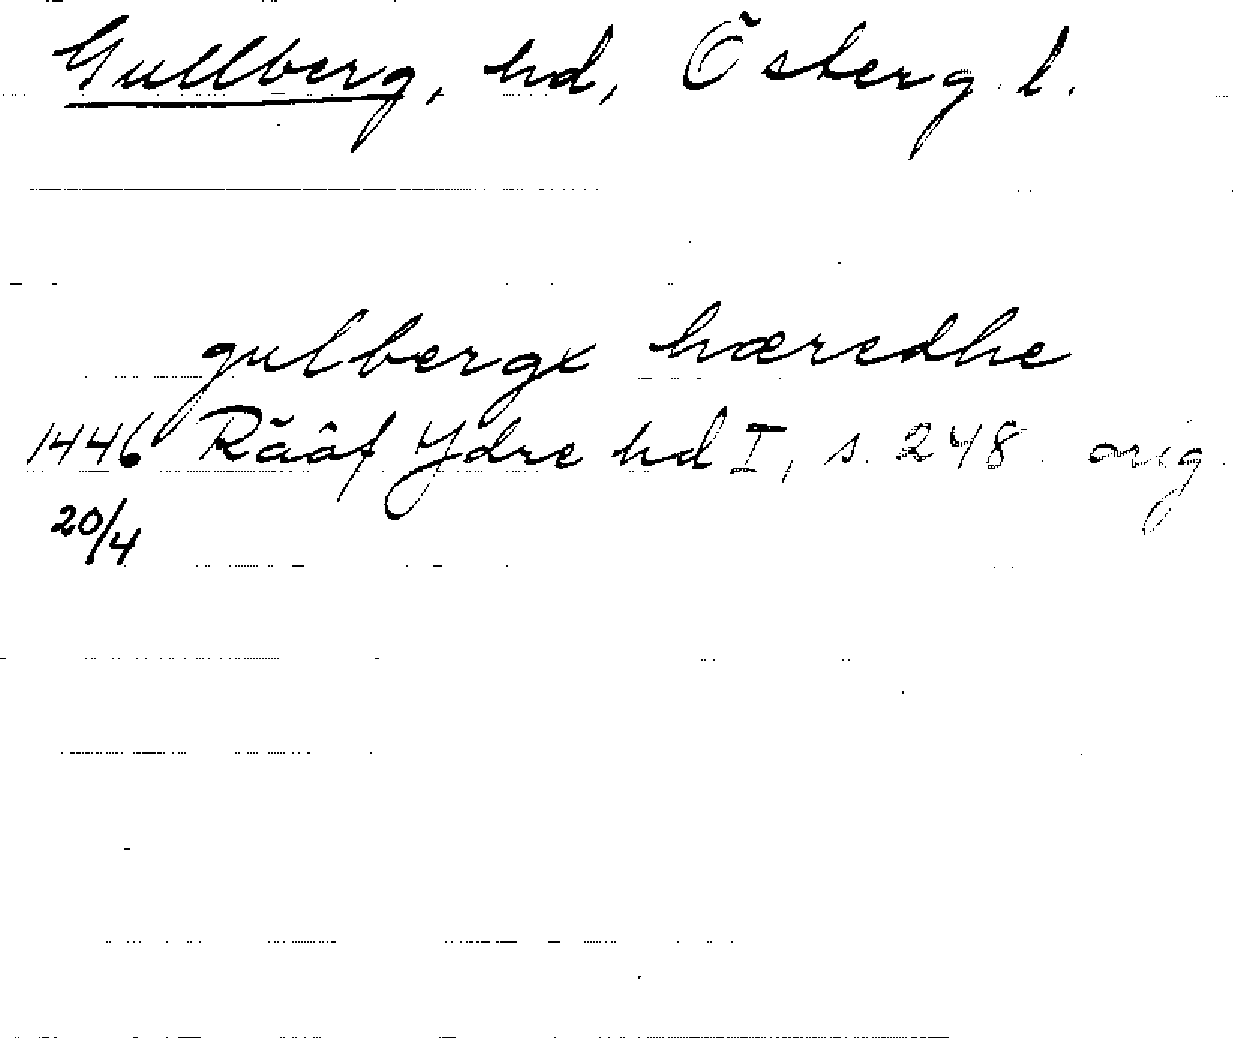 Gullberg, hd, Österg. l.
gulbergx hæredhe
1446 Rääf Ydre hd I, s. 248. orig.
20/4